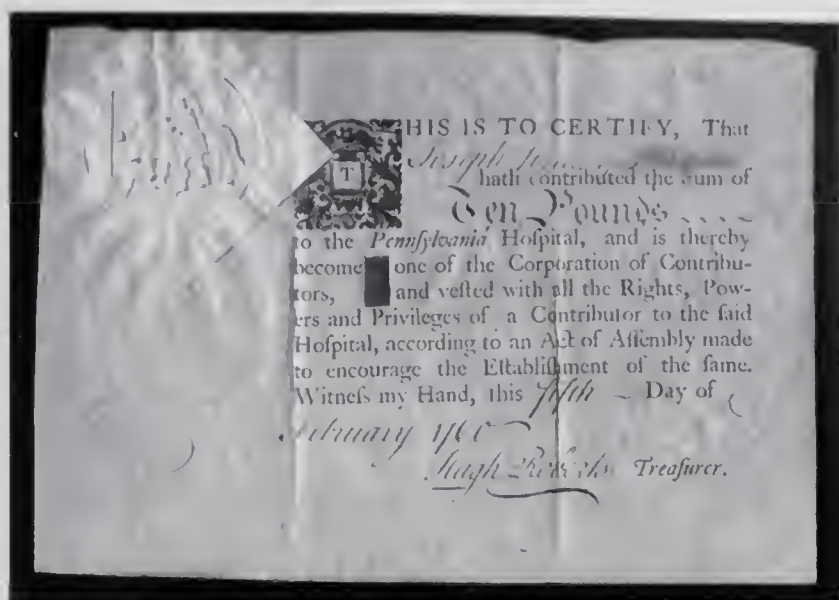 THIS IS TO CERTIFY, That
Joseph
hath contributed the Sum of
Ten Pounds
to the Pennſylvania Hoſpital, and is thereby
become one of the Corporation of Contribu-
tors, and veſted with all the Rights, Pow-
ers and Privileges of a Contributor to the ſaid
Hoſpital, according to an Act of Aſſembly made
to encourage the Eſtabliſhment of the ſame.
Witneſs my Hand, this fifth Day of
February
Hugh Roberts Treaſurer.